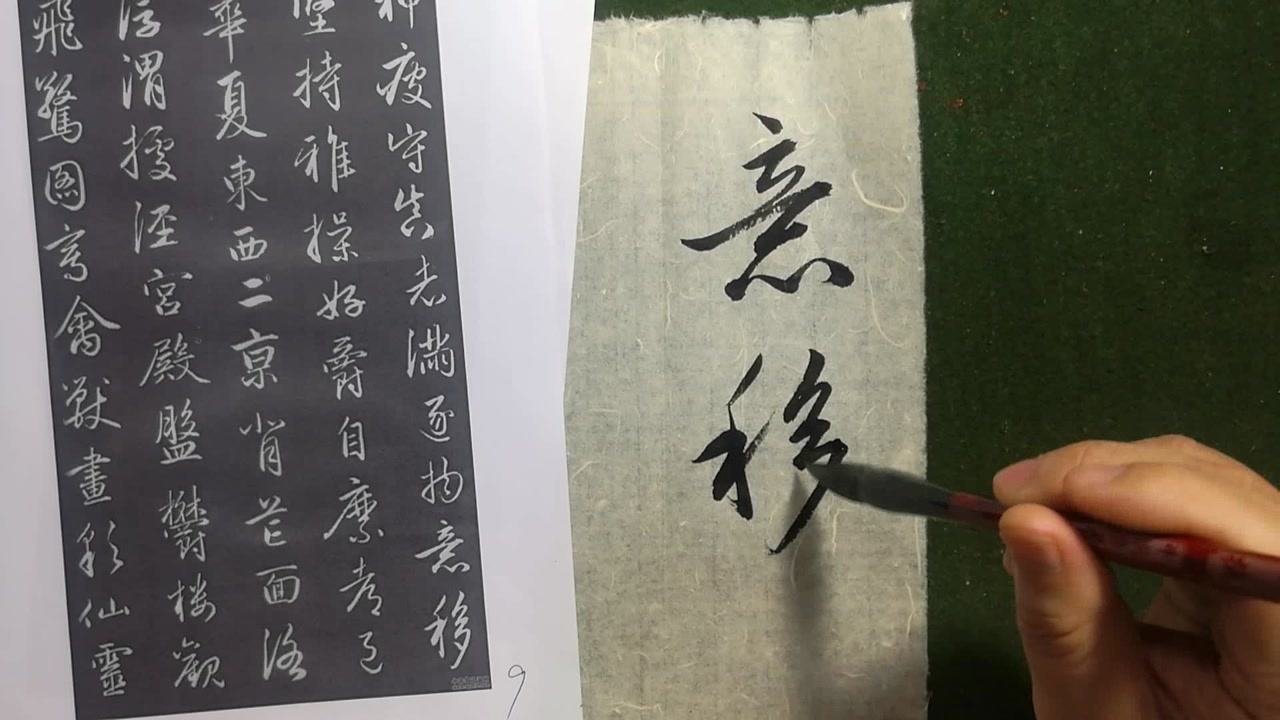 神疲守真志滿逐物意移
堅持雅操好爵自縻都邑
華夏東西二京背芒面洛
浮渭據涇宮殿盤鬱樓觀
飛驚圖寫禽獸畫彩仙靈
9
意移